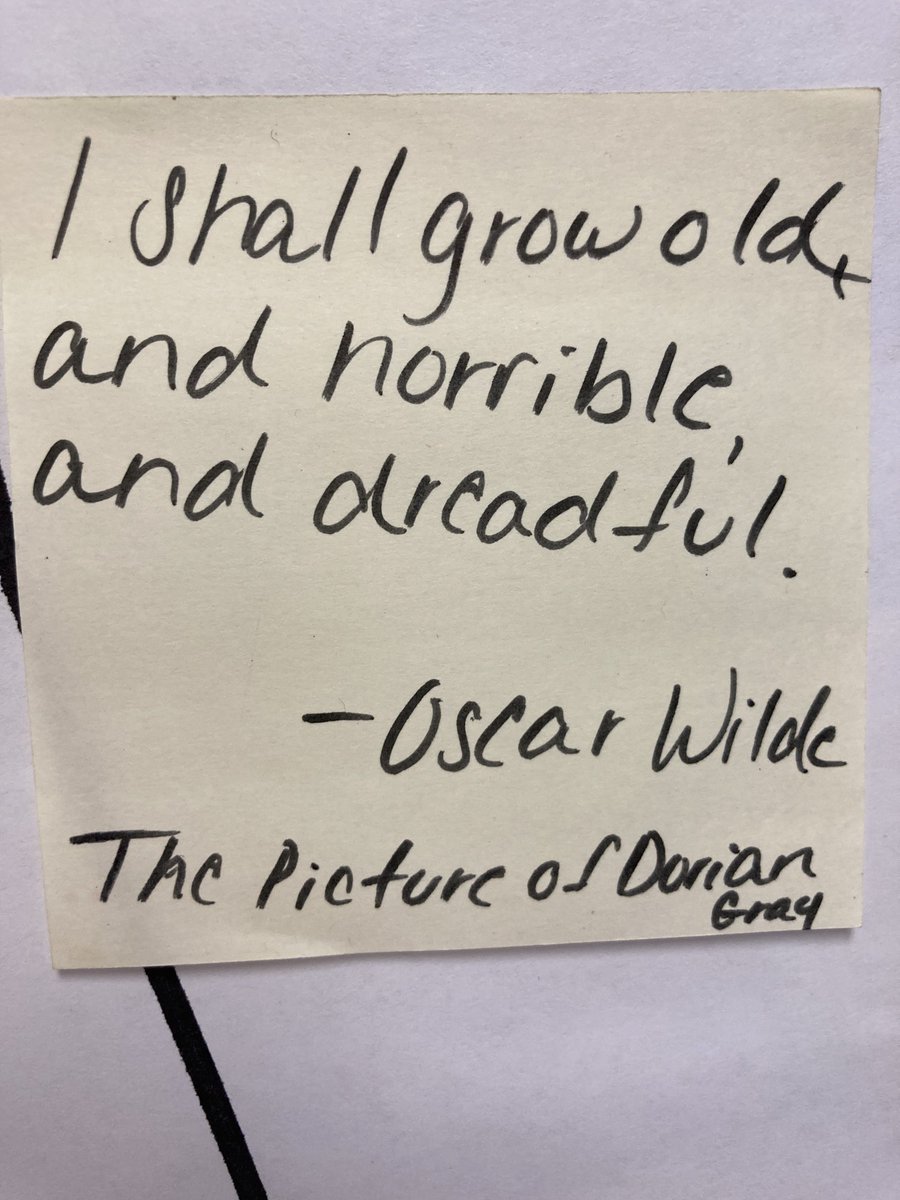 I shall grow old,
and horrible,
and dreadful.
- Oscar Wilde
The Picture of Dorian
Gray